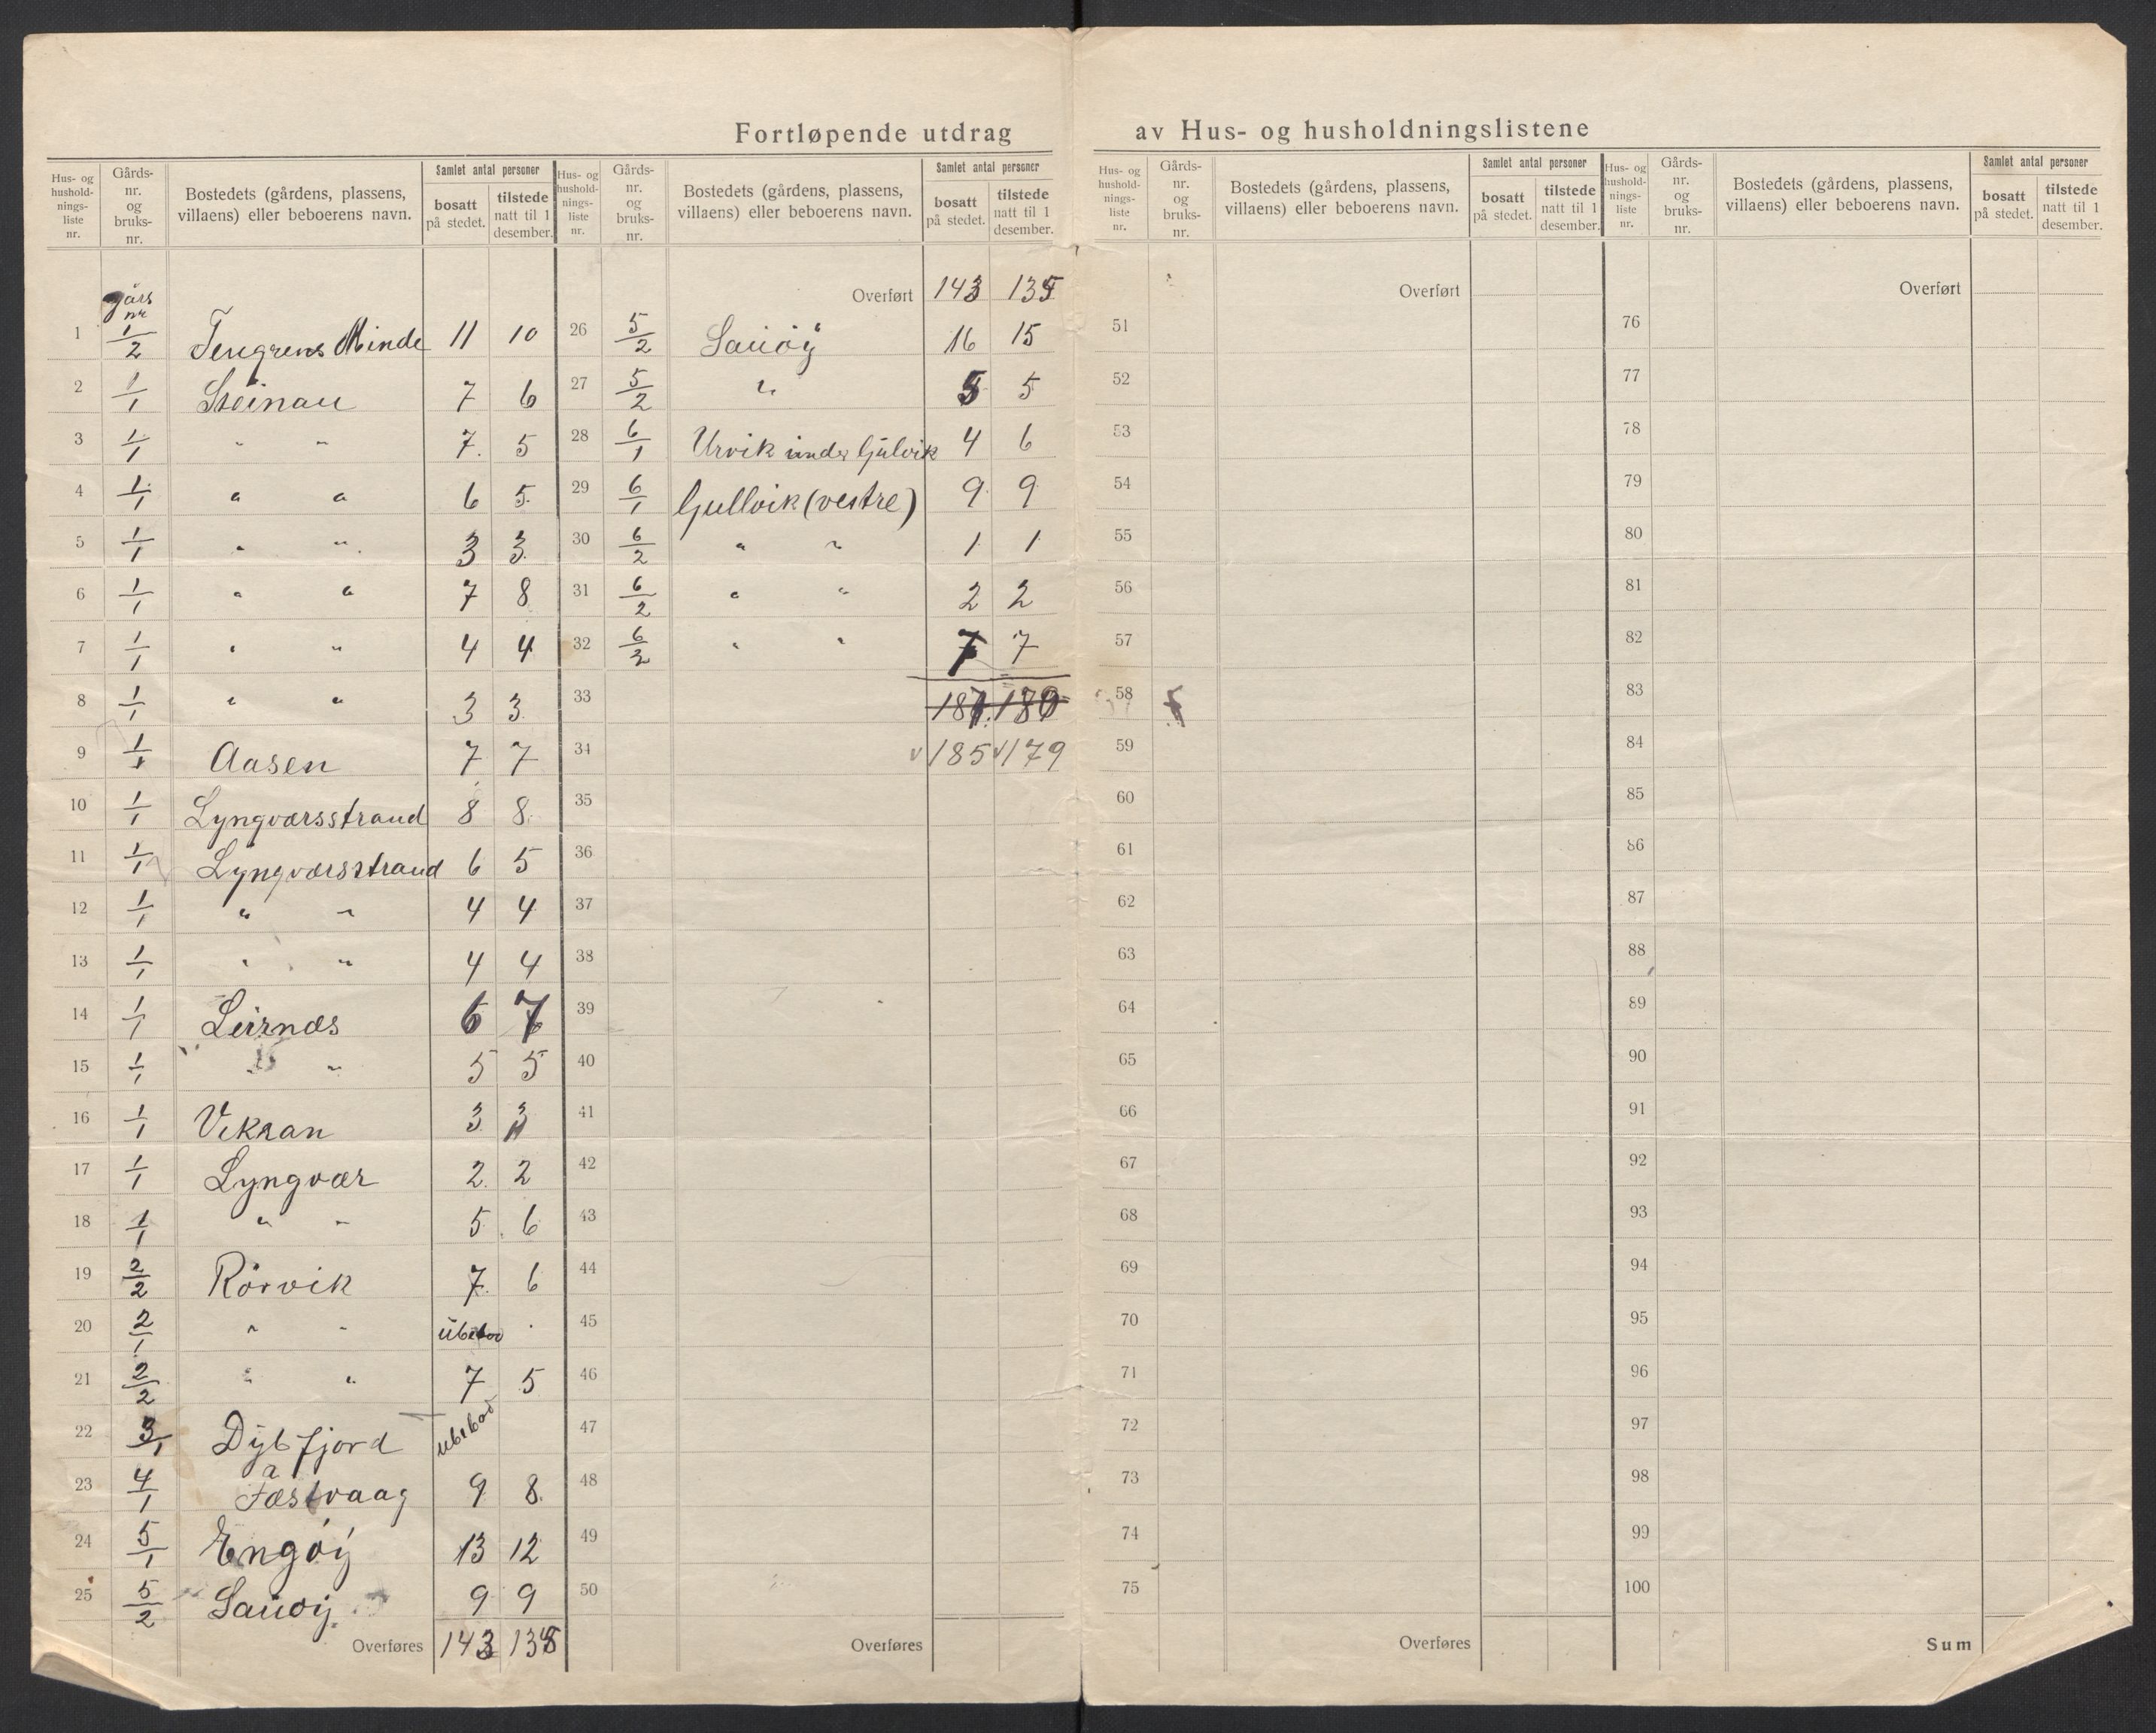 Fortløpende utdrag av Hus- og husholdningslistene
Hus- og hushold-nings-liste nr. Gårds-nr. og bruks-nr. Bostedets (gårdens, plassens, villaens) eller beboerens navn. Samlet antal personer bosatt på stedet. tilstede natt til 1 desember.
Hus- og hushold-nings-liste nr. Gårds-nr. og bruks-nr. Bostedets (gårdens, plassens, villaens) eller beboerens navn. Samlet antal personer bosatt på stedet. tilstede natt til 1 desember.
Hus- og hushold-nings-liste nr. Gårds-nr. og bruks-nr. Bostedets (gårdens, plassens, villaens) eller beboerens navn. Samlet antal personer bosatt på stedet. tilstede natt til 1 desember.
Hus- og hushold-nings-liste nr. Gårds-nr. og bruks-nr. Bostedets (gårdens, plassens, villaens) eller beboerens navn. Samlet antal personer bosatt på stedet. tilstede natt til 1 desember.
gårs nr
1 1/2 Tengrens Minde 11 10
2 1/1 Steinau 7 6
3 1/1 " " 7. 5
4 1/1 " " 6 5
5 1/1 " " 3 3
6 1/1 " " 7 8
7 1/1 " " 4 4
8 1/1 " " 3 3
9 1/1 Aasen 7 7
10 1/1 Lyngværsstrand 8 8
11 1/1 Lyngværsstrand 6 5
12 1/1 " " 4 4
13 1/1 " " 4 4
14 1/1 Leirnæs 6 7
15 1/1 " " 5 5
16 1/1 Vikran 3 3
17 1/1 Lyngvær 2 2
18 1/1 " " 5 6
19 2/2 Rørvik 7 6
20 2/1 " " ubebod
21 2/2 " " 7 5
22 3/1 Dybfjord ubebod
23 4/1 Fæstvaag 9 8
24 5/1 Engøy 13 12
25 5/2 Sauøy 9 9
Overføres 143
Overført 143
26 5/2 Sauøy 16 15
27 5/2 " 5 5
28 6/1 Urvik under Gjulvik 4 6
29 6/1 Gjullvik (vestre) 9 9
30 6/2 " " 1 1
31 6/2 " " 2 2
32 " " 7 7
33
34 185 179
35
36
37
38
39
40
41
42
43
44
45
46
47
48
49
50
Overføres
Overført
51
52
53
54
55
56
57
58
59
60
61
62
63
64
65
66
67
68
69
70
71
72
73
74
75
Overføres
Overført
76
77
78
79
80
81
82
83
84
85
86
87
88
89
90
91
92
93
94
95
96
97
98
99
100
Sum